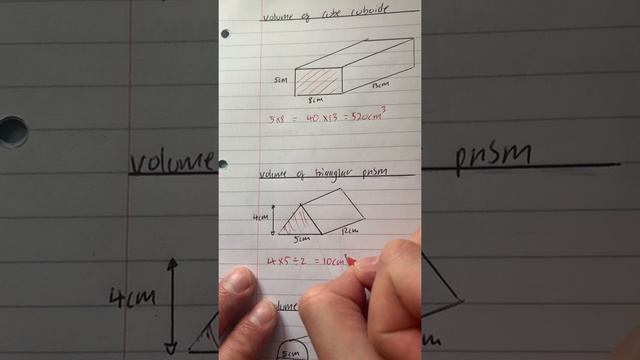 volume of cube cuboide
5cm
8cm
13cm
5x8 = 40 x13 = 520cm³
volume of triangular prism
4cm
5cm
12cm
4x5÷2 = 10cm²
volume
5cm
volume
prism
4cm